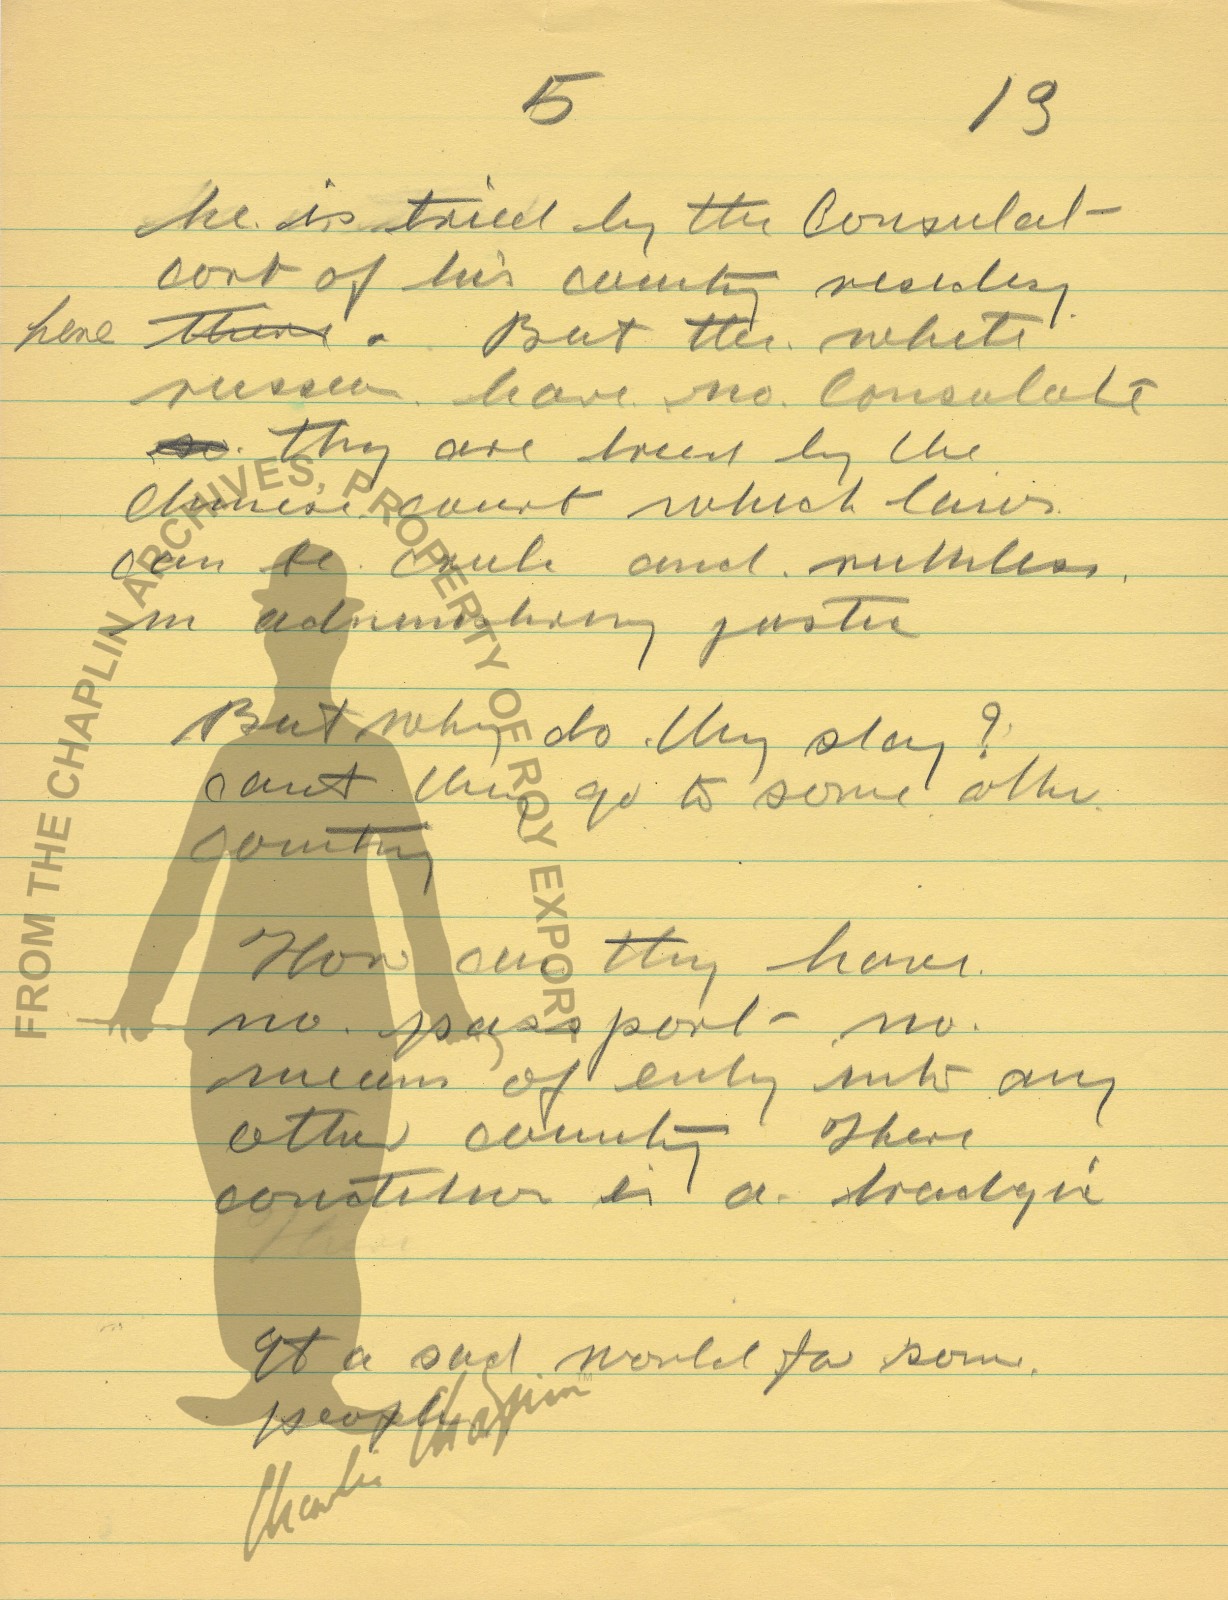 5 13
he is tried by the Consulat
cort of his country residing
here there. But the white
russian have no Consulate
so they are tried by the
Chinese court which laws
can be cruel and ruthless
in administering justice
But why do they stay?
cant they go to some other
country
How can they have
no passport no
means of entry into any
other country There
condition is a tradgic
There
It a sad world for some
people
FROM THE CHAPLIN ARCHIVES, PROPERTY OF ROY EXPORT
Charlie Chaplin™